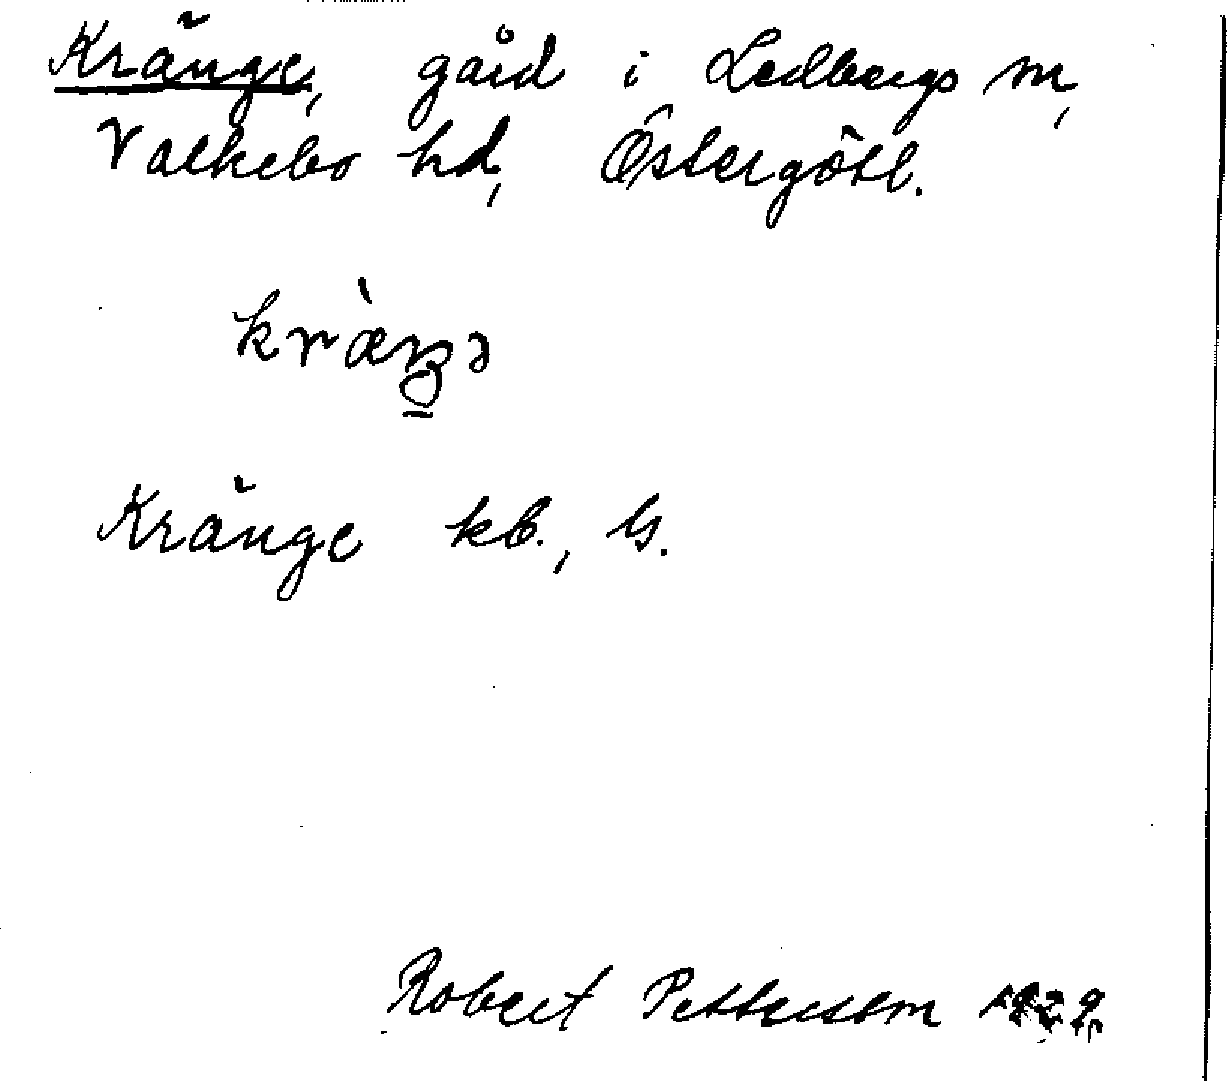 Kränge, gård i Ledbergs sn,
Valkebo hd, Östergötl.
Kränge kb., ls.
Robert Pettersson 1929